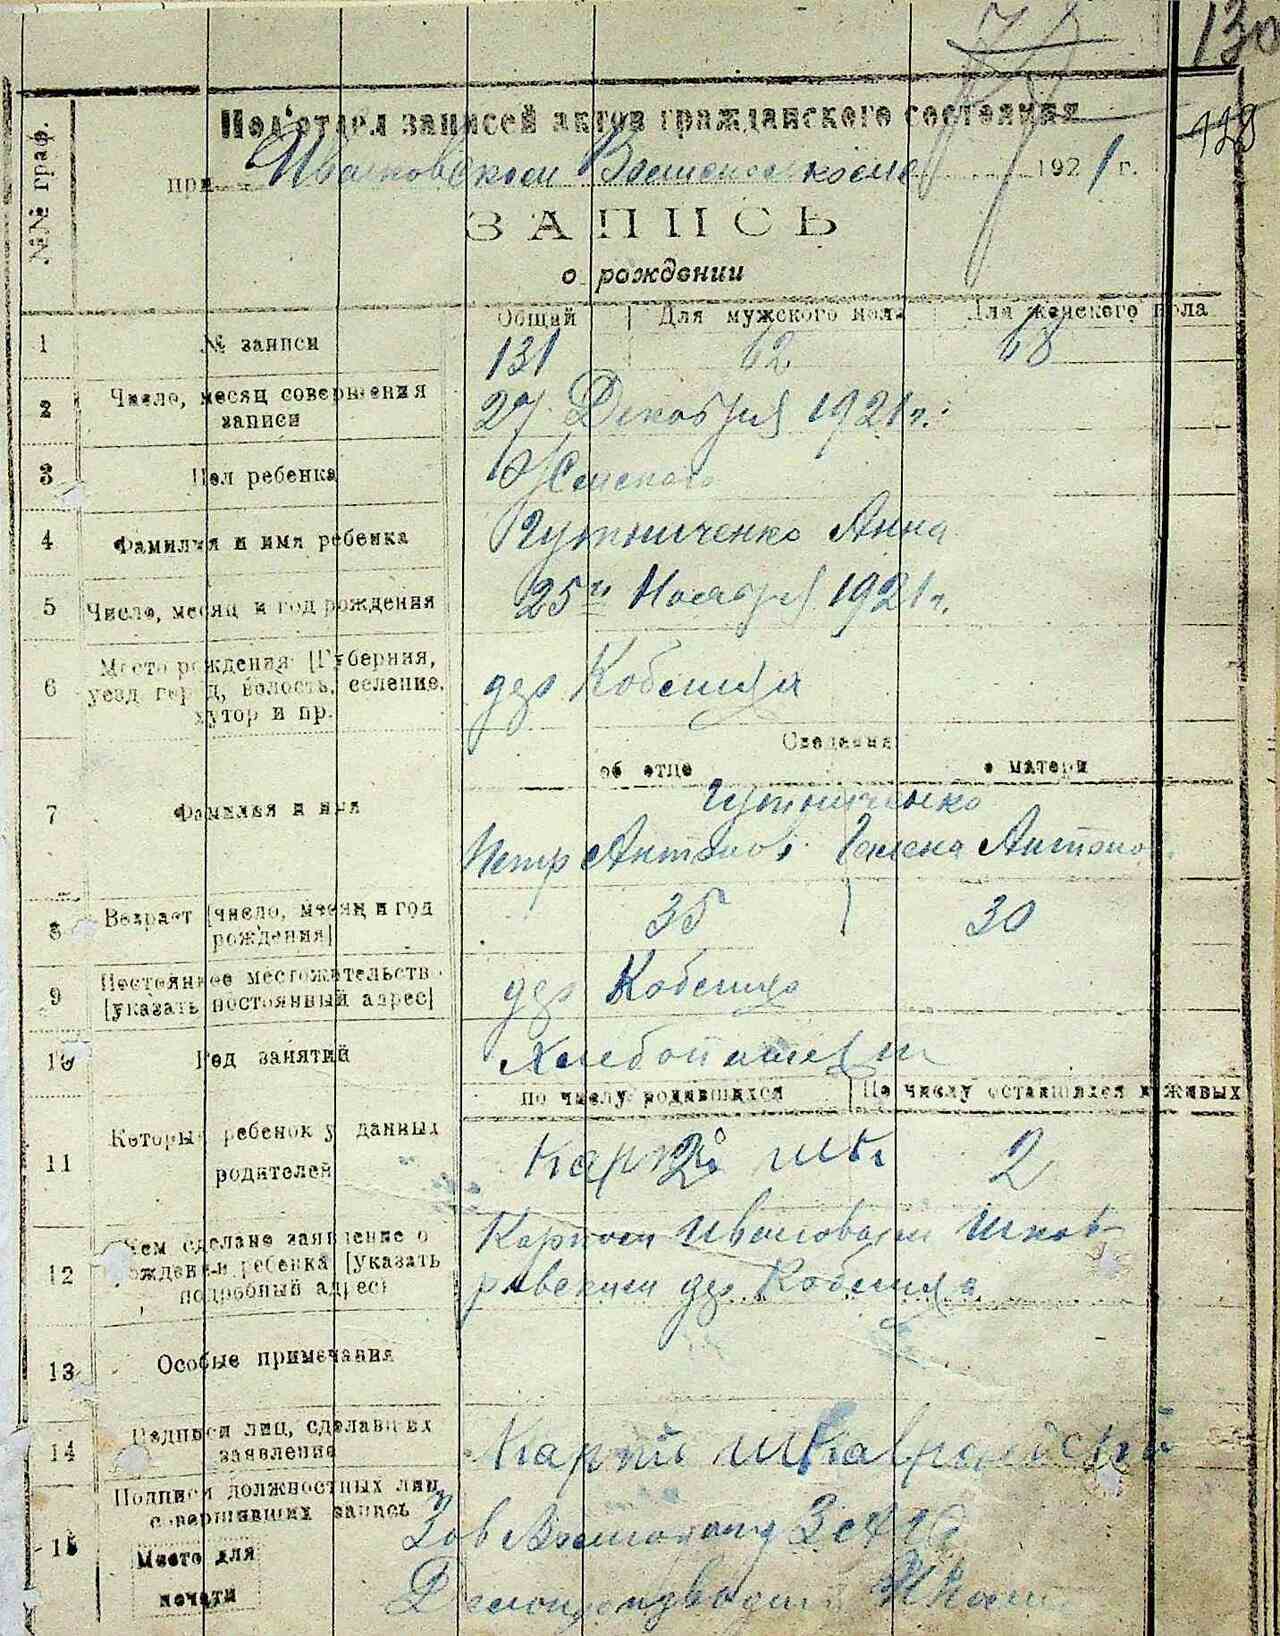 130
128
Под'отдел записей актов гражданского состояния
при Ивановском Волисполкоме 1921 г.
ЗАПИСЬ
о рождении
№№ граф.
Общий Для мужского пола Для женского пола
1 № записи 131 62 68
2 Число, месяц совершения
записи 27 Декабря 1921 г.
3 Пол ребенка Женского
4 Фамилия и имя ребенка Гутниченко Анна
5 Число, месяц и год рождения 25го Ноября 1921 г.
6 Место рождения [Губерния,
уезд, город, волость, селение, дер
хутор и пр.
Сведения
об отце о матери
7 Фамилия и имя Гутниченко
Петр Антонов. Антоно
8 Возраст [число, месяц и год 35 30
рождения]
9 Постоянное местожительство дер
[указать постоянный адрес]
10 Род занятий Хлебопашест
по числу родившихся По числу оставшихся в живых
11 Который ребенок у данных
родителей 2 2
12 Кем сделано заявление о Карпом Ивановым
рождении ребенка [указать дер
подробный адрес]
13 Особые примечания
14 Подписи лиц, сделавших Карпо
заявление
15 Подписи должностных лиц
совершивших запись Зав
Место для
печати Делопроизводит